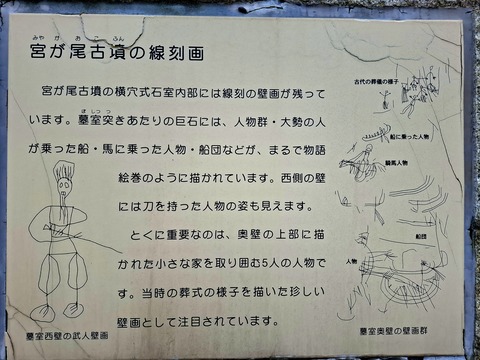 みや が お こ ふん
宮が尾古墳の線刻画
宮が尾古墳の横穴式石室内部には線刻の壁画が残って
います。墓室突きあたりの巨石には、人物群・大勢の人
ぼ しつ つ
が乗った船・馬に乗った人物・船団などが、まるで物語
絵巻のように描かれています。西側の壁
には刀を持った人物の姿も見えます。
とくに重要なのは、奥壁の上部に描
かれた小さな家を取り囲む5人の人物で
す。当時の葬式の様子を描いた珍しい
壁画として注目されています。
墓室西壁の武人壁画
古代の葬儀の様子
船に乗った人物
騎馬人物
船団
人物
墓室奥壁の壁画群